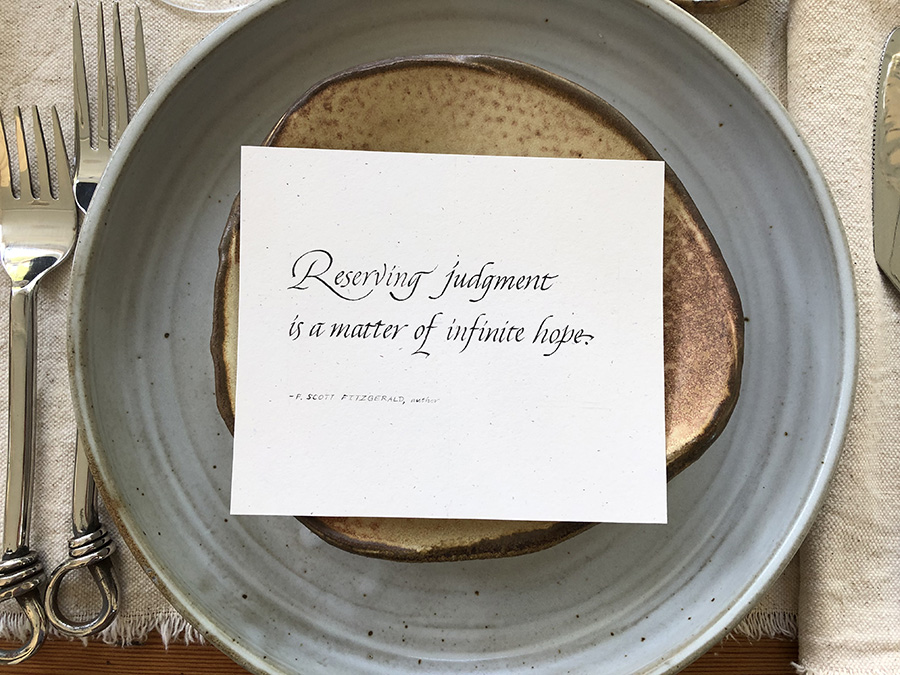 Reserving judgment
is a matter of infinite hope.
- F. SCOTT FITZGERALD, author